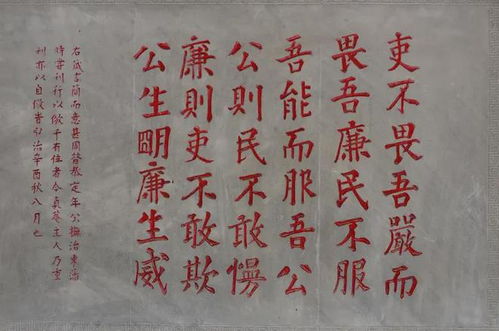 吏不畏吾嚴而
畏吾廉民不服
吾能而服吾公
公則民不敢慢
廉則吏不敢欺
公生朙廉生威
右箴言簡而意甚周定年公撫治東藩
時嘗刊行以儆于有位者今真菴主人乃重
刊亦以自儆皆弘治辛酉秋八月也